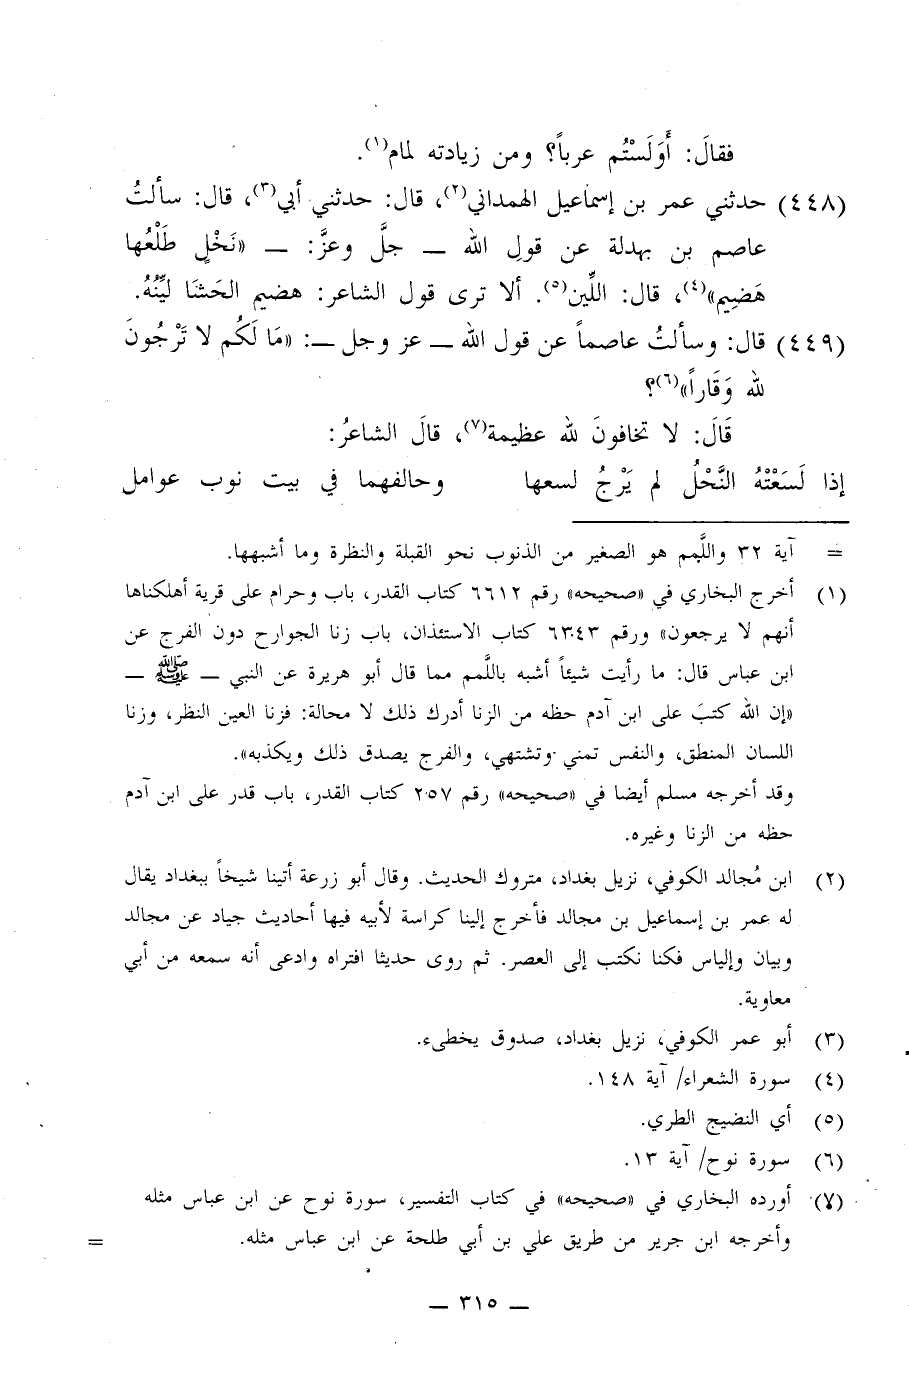 فقالَ: أَوَلَسْتُم عرباً؟ ومن زيادته لمام(١).
(٤٤٨) حدثني عمر بن إسماعيل الهمداني(٢)، قال: حدثني أبي(٣)، قال: سألتُ
عاصم بن بهدلة عن قولِ الله ــ جلَّ وعزَّ: ــ «نَخْلٍ طَلْعُها
هَضِيم»(٤)، قال: اللِّين(٥). ألا ترى قول الشاعر: هضيم الحَشَا ليِّنُهُ.
(٤٤٩) قال: وسألتُ عاصماً عن قول الله ــ عز وجل ــ: «مَا لَكُم لا تَرْجُونَ
لله وَقَاراً»(٦)؟
قَالَ: لا تخافونَ لله عظيمة(٧)، قالَ الشاعرُ:
إذا لَسَعَتْهُ النَّحْلُ لم يَرْجُ لسعها وحالفهما في بيت نوب عوامل
= آية ٣٢ واللَّمم هو الصغير من الذنوب نحو القبلة والنظرة وما أشبهها.
(١) أخرج البخاري في «صحيحه» رقم ٦٦١٢ كتاب القدر، باب وحرام على قرية أهلكناها
أنهم لا يرجعون» ورقم ٦٣٠٤٣ كتاب الاستئذان، باب زنا الجوارح دون الفرج عن
ابن عباس قال: ما رأيت شيئاً أشبه باللَّمم مما قال أبو هريرة عن النبي ــ ﷺ ــ
«إن الله كتبَ على ابن آدم حظه من الزنا أدرك ذلك لا محالة: فزنا العين النظر، وزنا
اللسان المنطق، والنفس تمني وتشتهي، والفرج يصدق ذلك ويكذبه».
وقد أخرجه مسلم أيضا في «صحيحه» رقم ٢٠٥٧ كتاب القدر، باب قدر على ابن آدم
حظه من الزنا وغيره.
(٢) ابن مُجالد الكوفي، نزيل بغداد، متروك الحديث. وقال أبو زرعة أتينا شيخاً ببغداد يقال
له عمر بن إسماعيل بن مجالد فأخرج إلينا كراسة لأبيه فيها أحاديث جياد عن مجالد
وبيان وإلياس فكنا نكتب إلى العصر. ثم روى حديثا افتراه وادعى أنه سمعه من أبي
معاوية.
(٣) أبو عمر الكوفي، نزيل بغداد، صدوق يخطىء.
(٤) سورة الشعراء/ آية ١٤٨.
(٥) أي النضيج الطري.
(٦) سورة نوح/ آية ١٣.
(٧) أورده البخاري في «صحيحه» في كتاب التفسير، سورة نوح عن ابن عباس مثله
وأخرجه ابن جرير من طريق علي بن أبي طلحة عن ابن عباس مثله. =
ــ ٣١٥ ــ